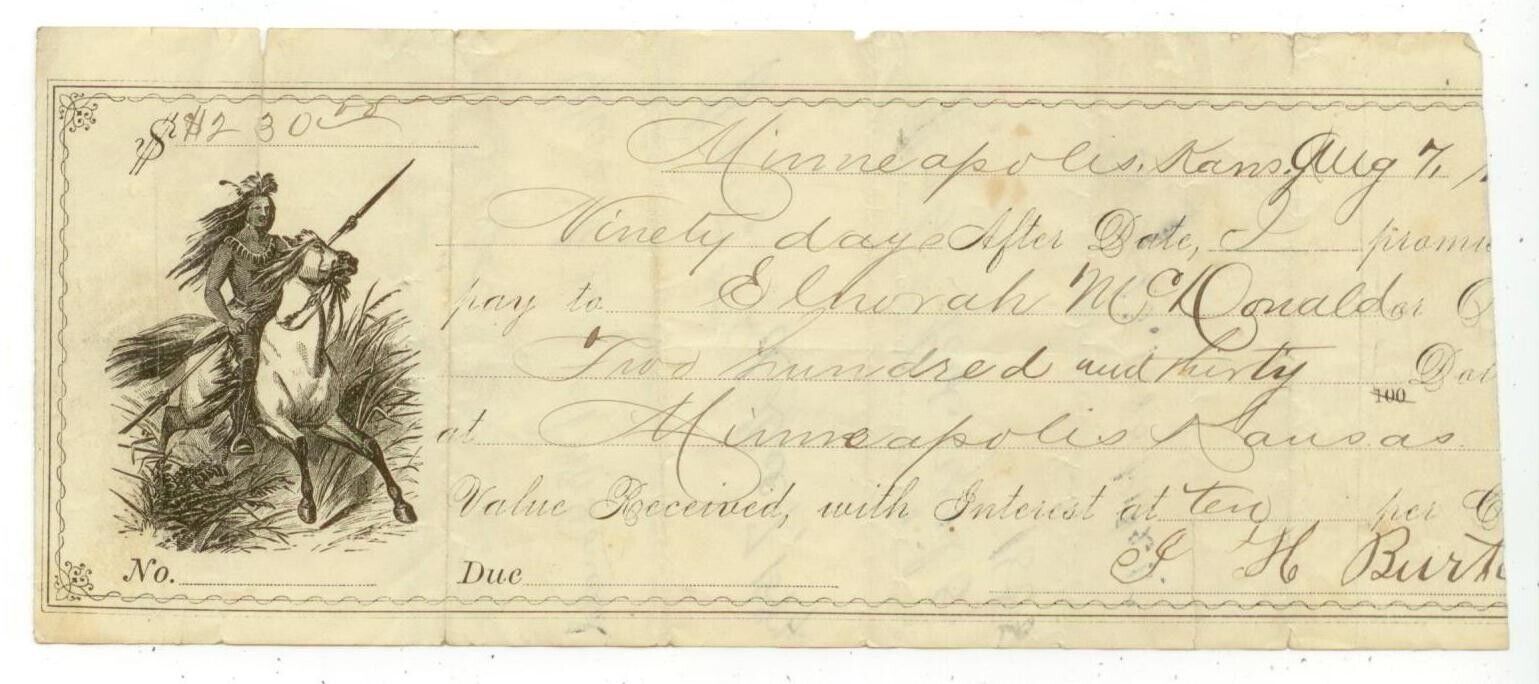 $ $230 00
Minneapolis, Kans. Aug 7, 1
Ninety days After Date, I promi
pay to Elnorah McDonald or O
Two hundred and thirty /100 Dol
at Minneapolis Kansas
Value Received, with Interest at ten per C
J H Burt
No. Due